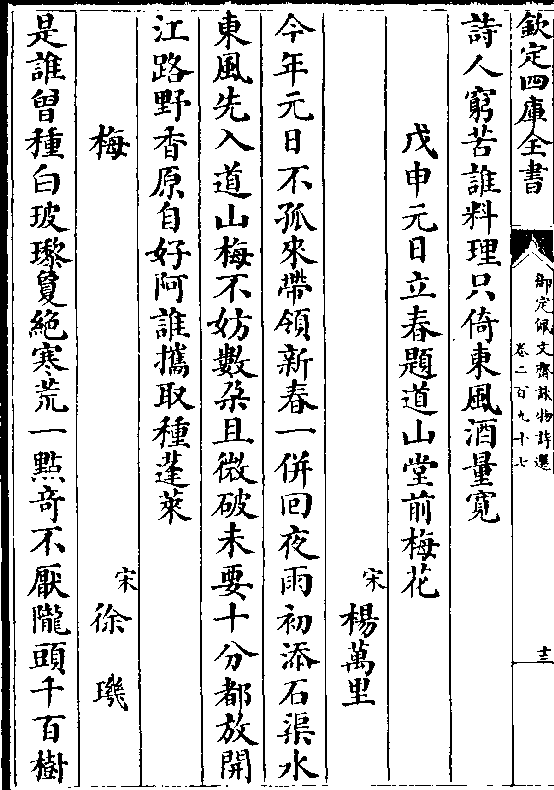 欽定四庫全書
御定佩文齋詠物詩選
卷二百九十七
十三
詩人窮苦誰料理只倚東風酒量寬
戊申元日立春題道山堂前梅花
宋楊萬里
今年元日不孤來帶領新春一併回夜雨初添石渠水
東風先入道山梅不妨數朶且微破未要十分都放開
江路野香原自好阿誰攜取種蓬萊
梅
宋徐璣
是誰曾種白玻瓈夐絶寒荒一點竒不厭隴頭千百樹